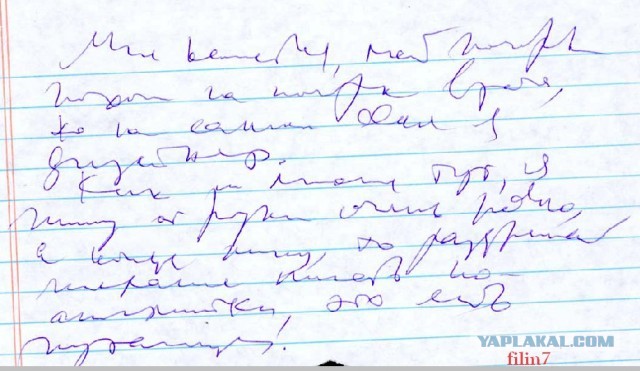 Мне кажется, мой почерк
похож на почерк врача,
но на самом деле я
дизайнер.
Как и многие тут, я
пишу от руки очень редко,
а когда пишу, то
писать по-
это
YAPLAKAL.COM
filin7